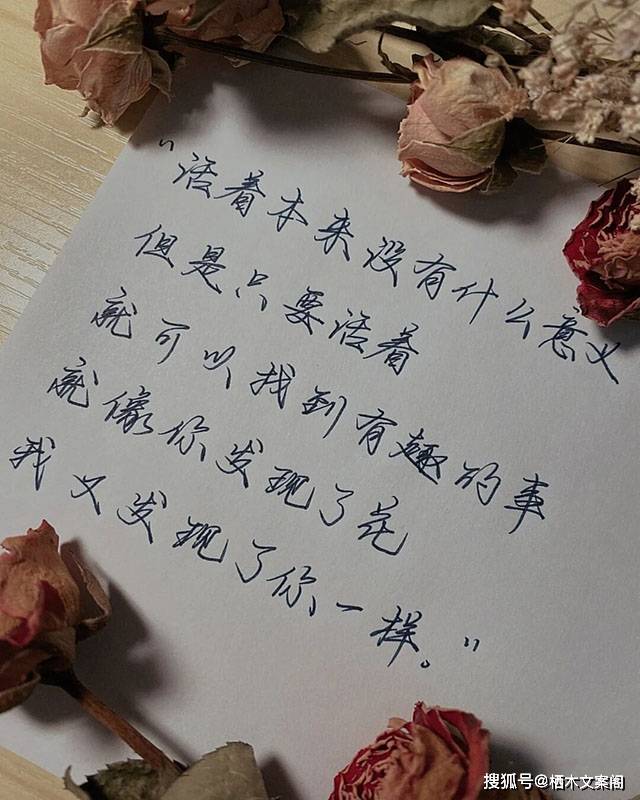 “活着本来没有什么意义
但是只要活着
就可以找到有趣的事
就像你发现了花
我又发现了你一样。”
搜狐号@栖木文案阁